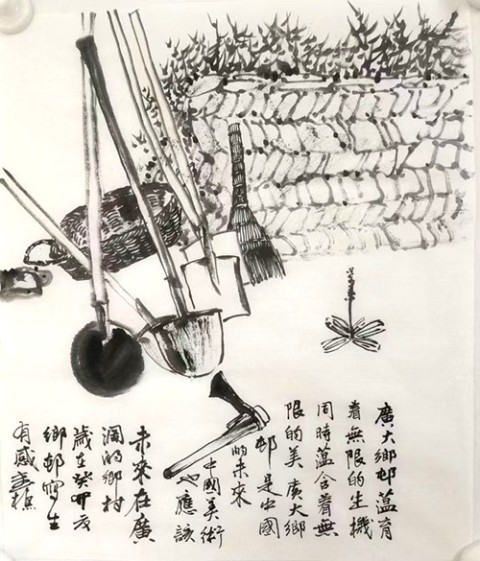 廣大鄉邨蕴育
着無限的生機
同時蕴含着無
限的美廣大鄉
邨是中國
的未來
中國美術
也應該
未來在廣
濶的鄉村
歲在癸卯夏
鄉邨寫生
有感